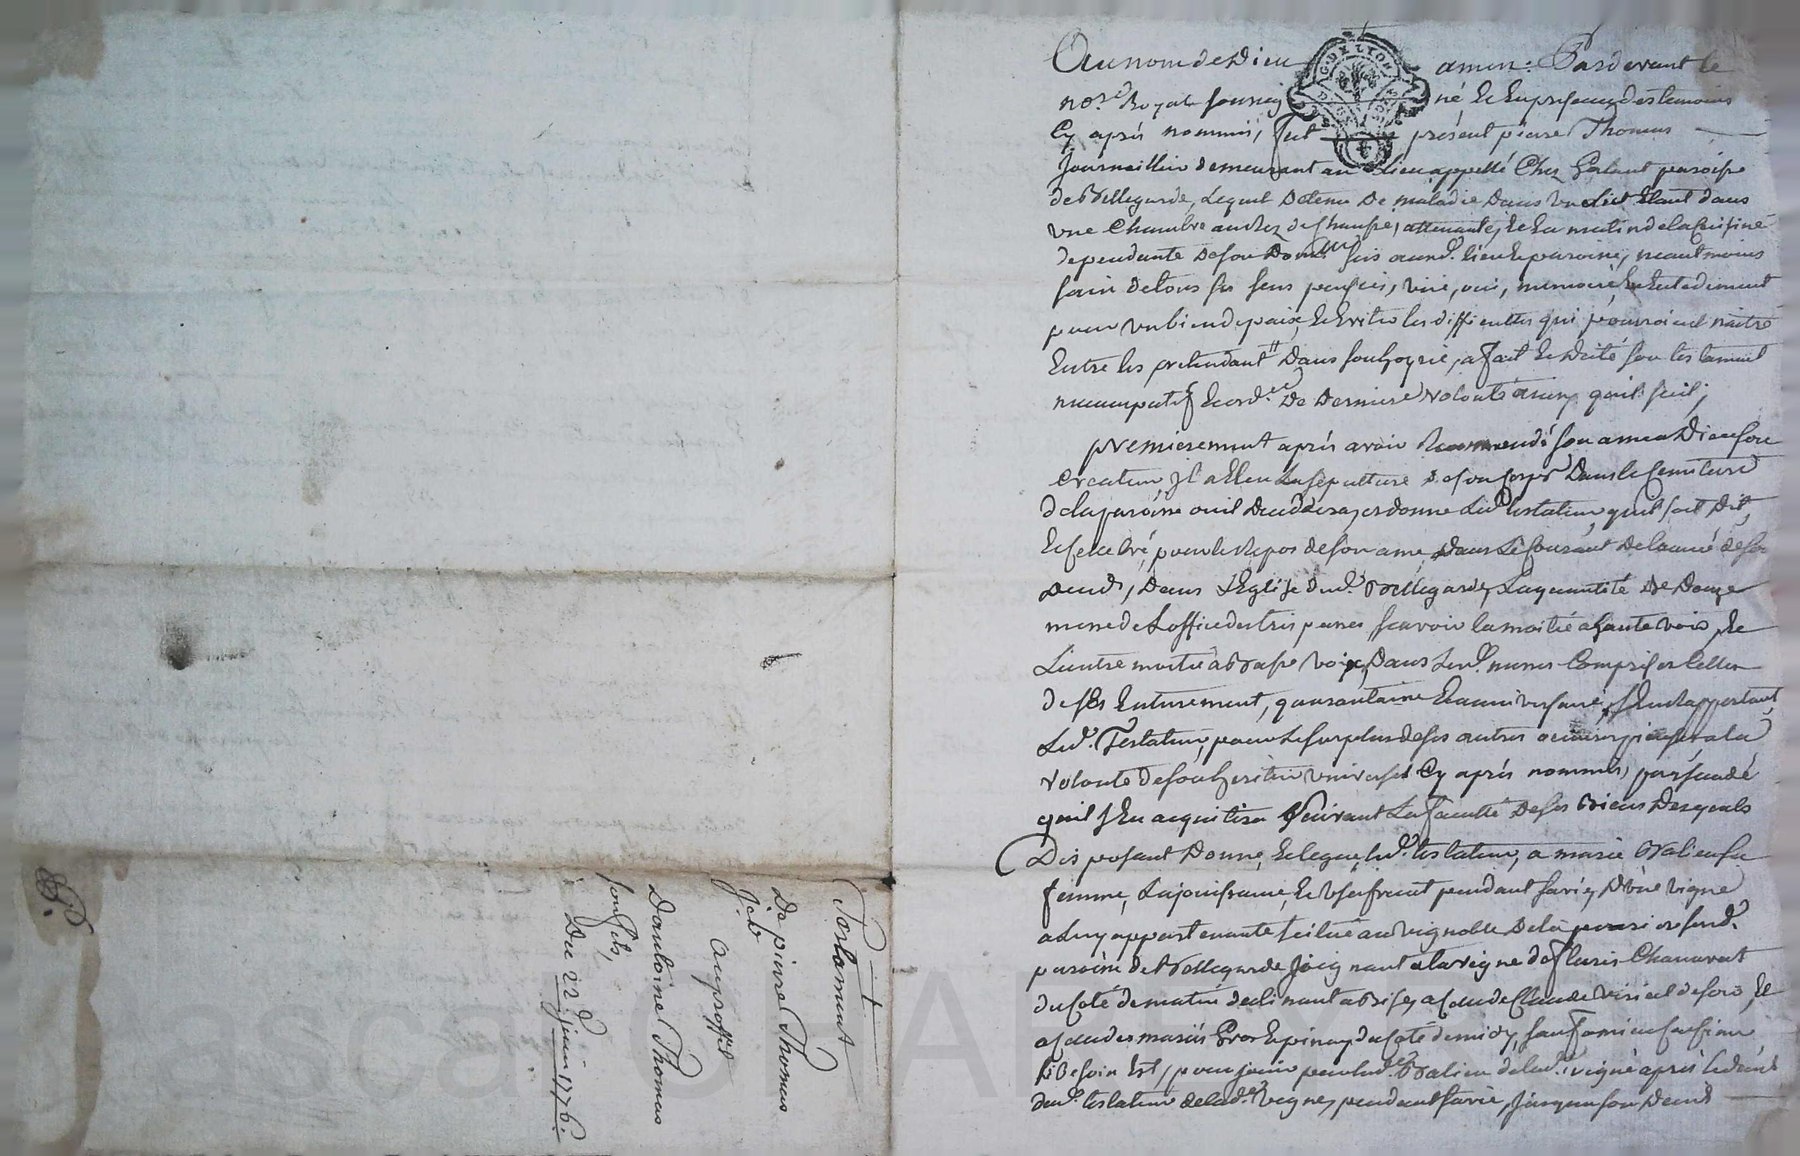 Au nom de Dieu amen: Pardevant le
no.re Royal soussigné et en presence des temoins
Cy après nommés, fut présent pierre Thomas
Journaillier demeurant au Lieu appellé Chez Galant paroisse
de Bellegarde, Lequel Detenu De maladie Dans un lict Etant dans
une Chambre au rez de Chaussé, attenante, et au matin de la Cuisine
dependante de son Dom.lle sis aud. lieu et paroisse, neantmoins
sain de tous ses sens pensées, vüe, ouie, memoire, et Entendement
pour un bien de paix, et Eviter les difficultés qui pourroient naitre
Entre les pretendant.s Dans son hoyrie, a fait et Dicté son testament
nuncupatif et ord.ce De Derniere volonté ainsy quil suit,
premierement après avoir Recommendé son ame a Dieu son
Createur Jl a Eleu La sépulture de son Corps Dans le Cemitiere
de la paroisse ou il Deceddera, ordonne Led. testateur, quil soit Dit,
et Celebré, pour le Repos de son ame, Dans Le Courant De lannée de son
Deces, Dans L'Eglise dud. Bellegarde, La quantité De Douze
messe de Loffice des trépassés sçavoir la moitié a haute voix, et
Lautre moitié à Basse voix, Dans Lesd. messes Comprises Celles
de ses Enterrement, quarantaine et anniversaire, s'En Rapportant
Led. Testateur, pour Le surplus de ses autres oeuvres pieuses a la
volonté de son heritier universel Cy après nommés, persuadé
quil s'En acquitera suivant La faculté De ses Biens Desquels
Disposant Donne, et legue, led. testateur, a marie Valien sa
femme, La jouissance, et usufruit pendant sa vie, D'une vigne
a Luy appartenante scituée au vignoble De la
paroisse de Bellegarde Joignant a la vigne de fleuris Chanavat
du Coté de matin declinant a Bise, a Celle de Claude de soir, et
a Celle des mariés Gros Epinay du Coté de midy, sauf
si Besoin Est, pour jouir par lad. Valien de lad. vigne après le decès
dud. testateur de lad. vigne, pendant sa vie, Jusqua son Decès
Testament
De pierre Thomas
Jeb
au proffit
Dantoine Thomas
son fils,
Du 22.e juin 1776.